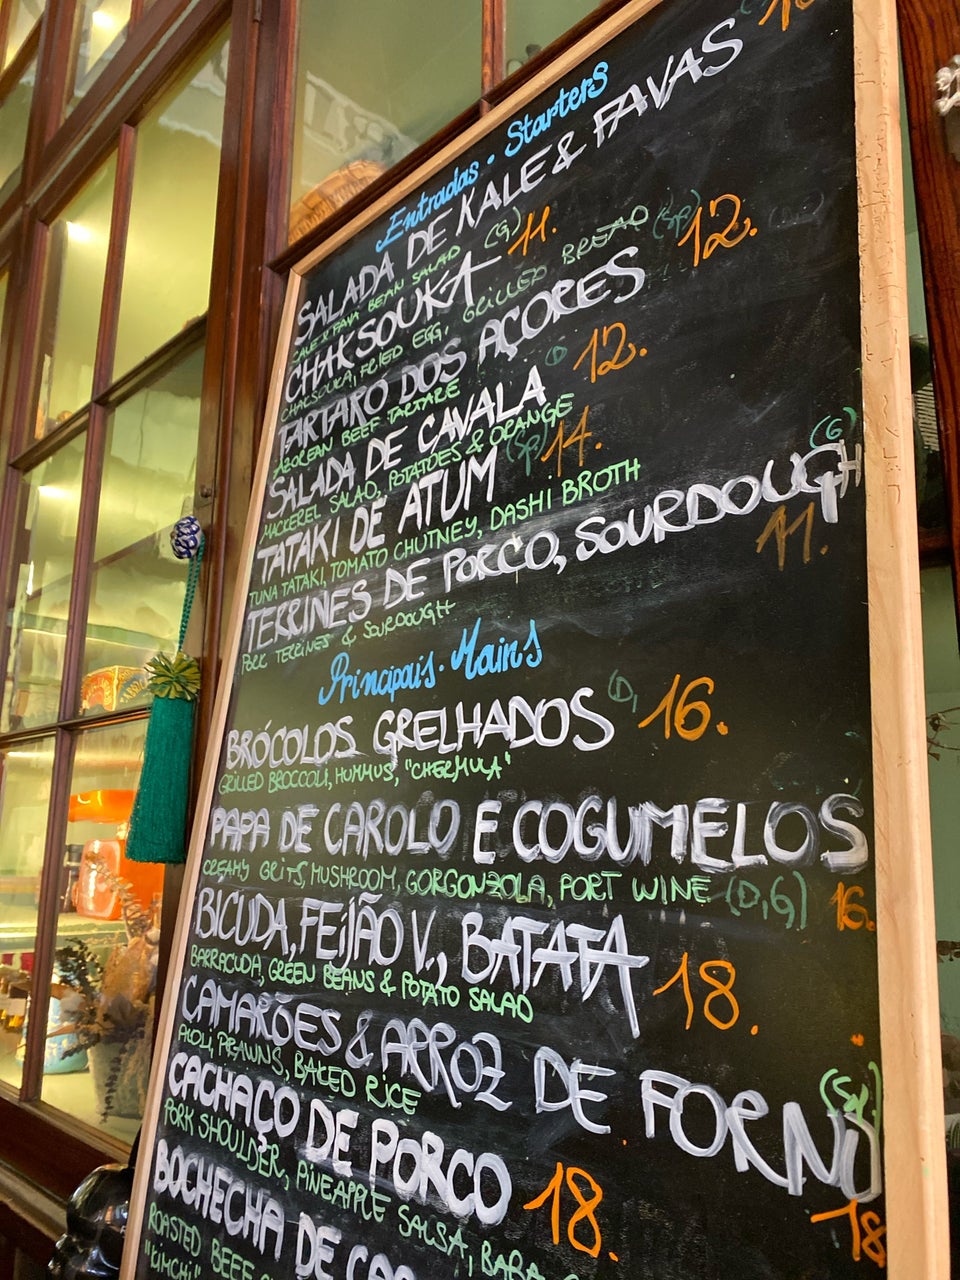 Entradas • Starters
SALADA DE KALE & FAVAS
KALE & FAVA BEAN SALAD (G) 11.
CHAKSOUKA
CHAKSOUKA, FRIED EGG, GRILLED BREAD 12.
TARTARO DOS AÇORES
AZOREAN BEEF TARTARE (D) 12.
SALADA DE CAVALA
MACKEREL SALAD, POTATOES & ORANGE
TATAKI DE ATUM 14.
TUNA TATAKI, TOMATO CHUTNEY, DASHI BROTH
TERRINES DE PORCO, SOURDOUGH (G)
PORK TERRINES & SOURDOUGH 11.
Principais • Mains
BRÓCOLOS GRELHADOS (D) 16.
GRILLED BROCCOLI, HUMMUS, "CHERMULA"
PAPA DE CAROLO E COGUMELOS
CREAMY GRITS, MUSHROOM, GORGONZOLA, PORT WINE (D,G) 16.
BICUDA, FEIJÃO V., BATATA 18.
BARRACUDA, GREEN BEANS & POTATO SALAD
CAMARÕES & ARROZ DE FORNO
AIOLI, PRAWNS, BAKED RICE 18
CACHAÇO DE PORCO 18.
PORK SHOULDER, PINEAPPLE SALSA,
BOCHECHA DE
ROASTED BEEF
"KIMCHI"